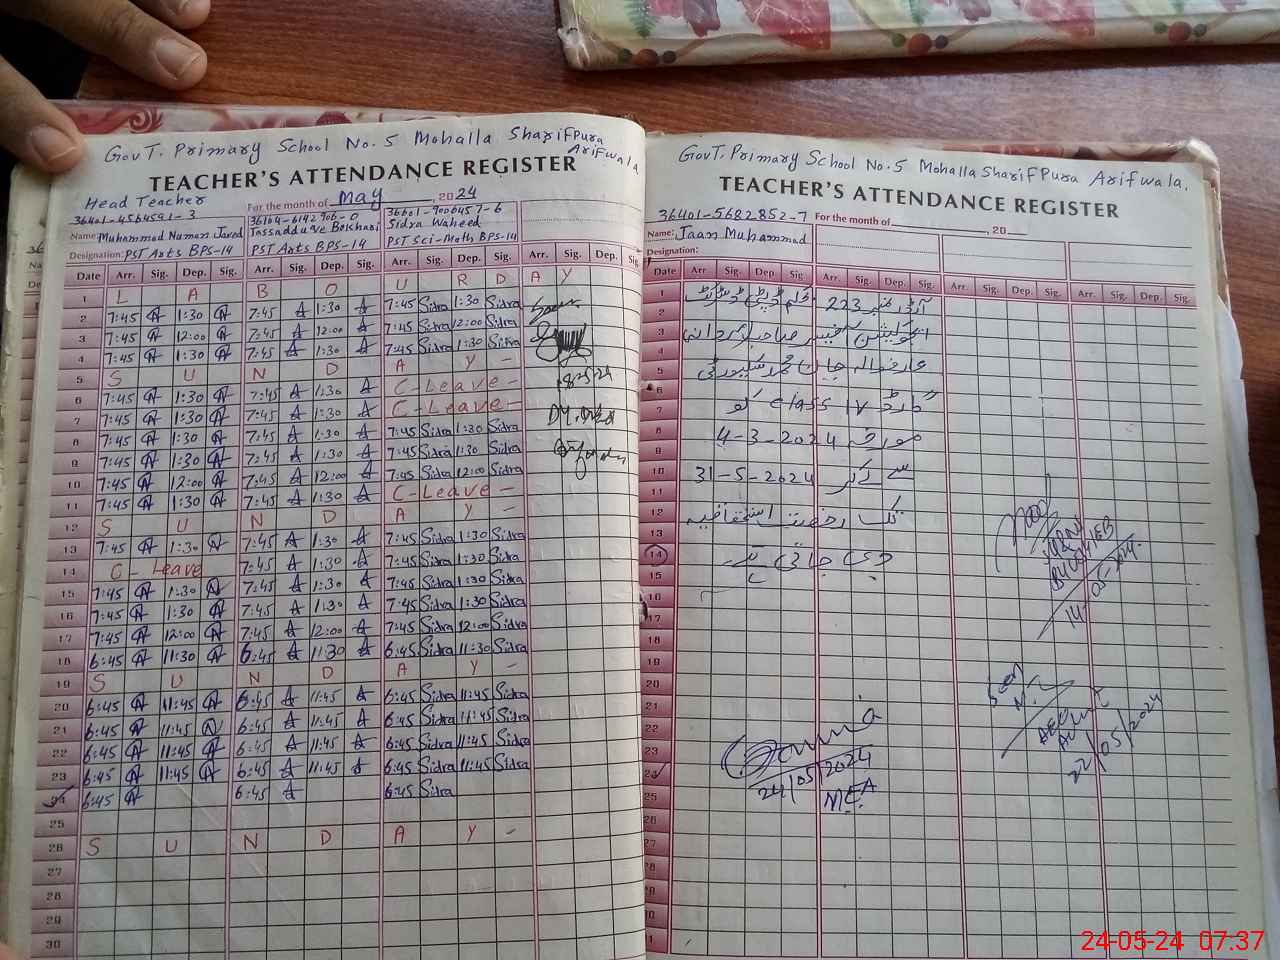 GovT. Primary School No. 5 Mohalla SharifPura
Arifwala.
TEACHER'S ATTENDANCE REGISTER
Head Teacher
For the month of May, 2024
36401-4564591-3 36104-6142906-0 36601-9006457-6
Name: Muhammad Numan Javed Tassadduqe Bokhari Sidra Waheed
Designation: PST Arts BPS-14 PST Arts BPS-14 PST Sci-Math BPS-14
Date Arr. Sig. Dep. Sig. Arr. Sig. Dep. Sig. Arr. Sig. Dep. Sig. Arr. Sig. Dep. Sig.
1 L A B O U R D A Y
2 7:45 1:30 7:45 1:30 7:45 Sidra 1:30 Sidra
3 7:45 12:00 7:45 12:00 7:45 Sidra 12:00 Sidra
4 7:45 1:30 7:45 1:30 7:45 Sidra 1:30 Sidra
5 S U N D A Y -
6 7:45 1:30 7:45 1:30 C-Leave-
7 7:45 1:30 7:45 1:30 C-Leave-
8 7:45 1:30 7:45 1:30 7:45 Sidra 1:30 Sidra
9 7:45 1:30 7:45 1:30 7:45 Sidra 1:30 Sidra
10 7:45 12:00 7:45 12:00 7:45 Sidra 12:00 Sidra
11 7:45 1:30 7:45 1:30 C-Leave-
12 S U N D A Y -
13 7:45 1:30 7:45 1:30 7:45 Sidra 1:30 Sidra
14 C-Leave 7:45 1:30 7:45 Sidra 1:30 Sidra
15 7:45 1:30 7:45 1:30 7:45 Sidra 1:30 Sidra
16 7:45 1:30 7:45 1:30 7:45 Sidra 1:30 Sidra
17 7:45 12:00 7:45 12:00 7:45 Sidra 12:00 Sidra
18 6:45 11:30 6:45 11:30 6:45 Sidra 11:30 Sidra
19 S U N D A Y -
20 6:45 11:45 6:45 11:45 6:45 Sidra 11:45 Sidra
21 6:45 11:45 6:45 11:45 6:45 Sidra 11:45 Sidra
22 6:45 11:45 6:45 11:45 6:45 Sidra 11:45 Sidra
23 6:45 11:45 6:45 11:45 6:45 Sidra 11:45 Sidra
24 6:45 6:45 6:45 Sidra
25
26 S U N D A Y -
27
28
29
30
GovT. Primary School No. 5 Mohalla SharifPura Arifwala.
TEACHER'S ATTENDANCE REGISTER
36401-5682852-7 For the month of , 20
Name: Jaan Muhammad
Designation:
Date Arr. Sig. Dep. Sig. Arr. Sig. Dep. Sig. Arr. Sig. Dep. Sig. Arr. Sig. Dep. Sig.
1
2
3
4
5
6
7
8
9
10
11
12
13
14
15
16
17
18
19
20
21
22
23
24
25
26
27
28
29
30
آرڈر نمبر 223
class IV کو
مورخہ 4-3-2024
سے لے کر 31-5-2024
تک رخصت استحقاقیہ
دی جاتی ہے۔
14-05-2024
Seen
22/05/2024
24/05/2024
M.E.A
24-05-24 07:37